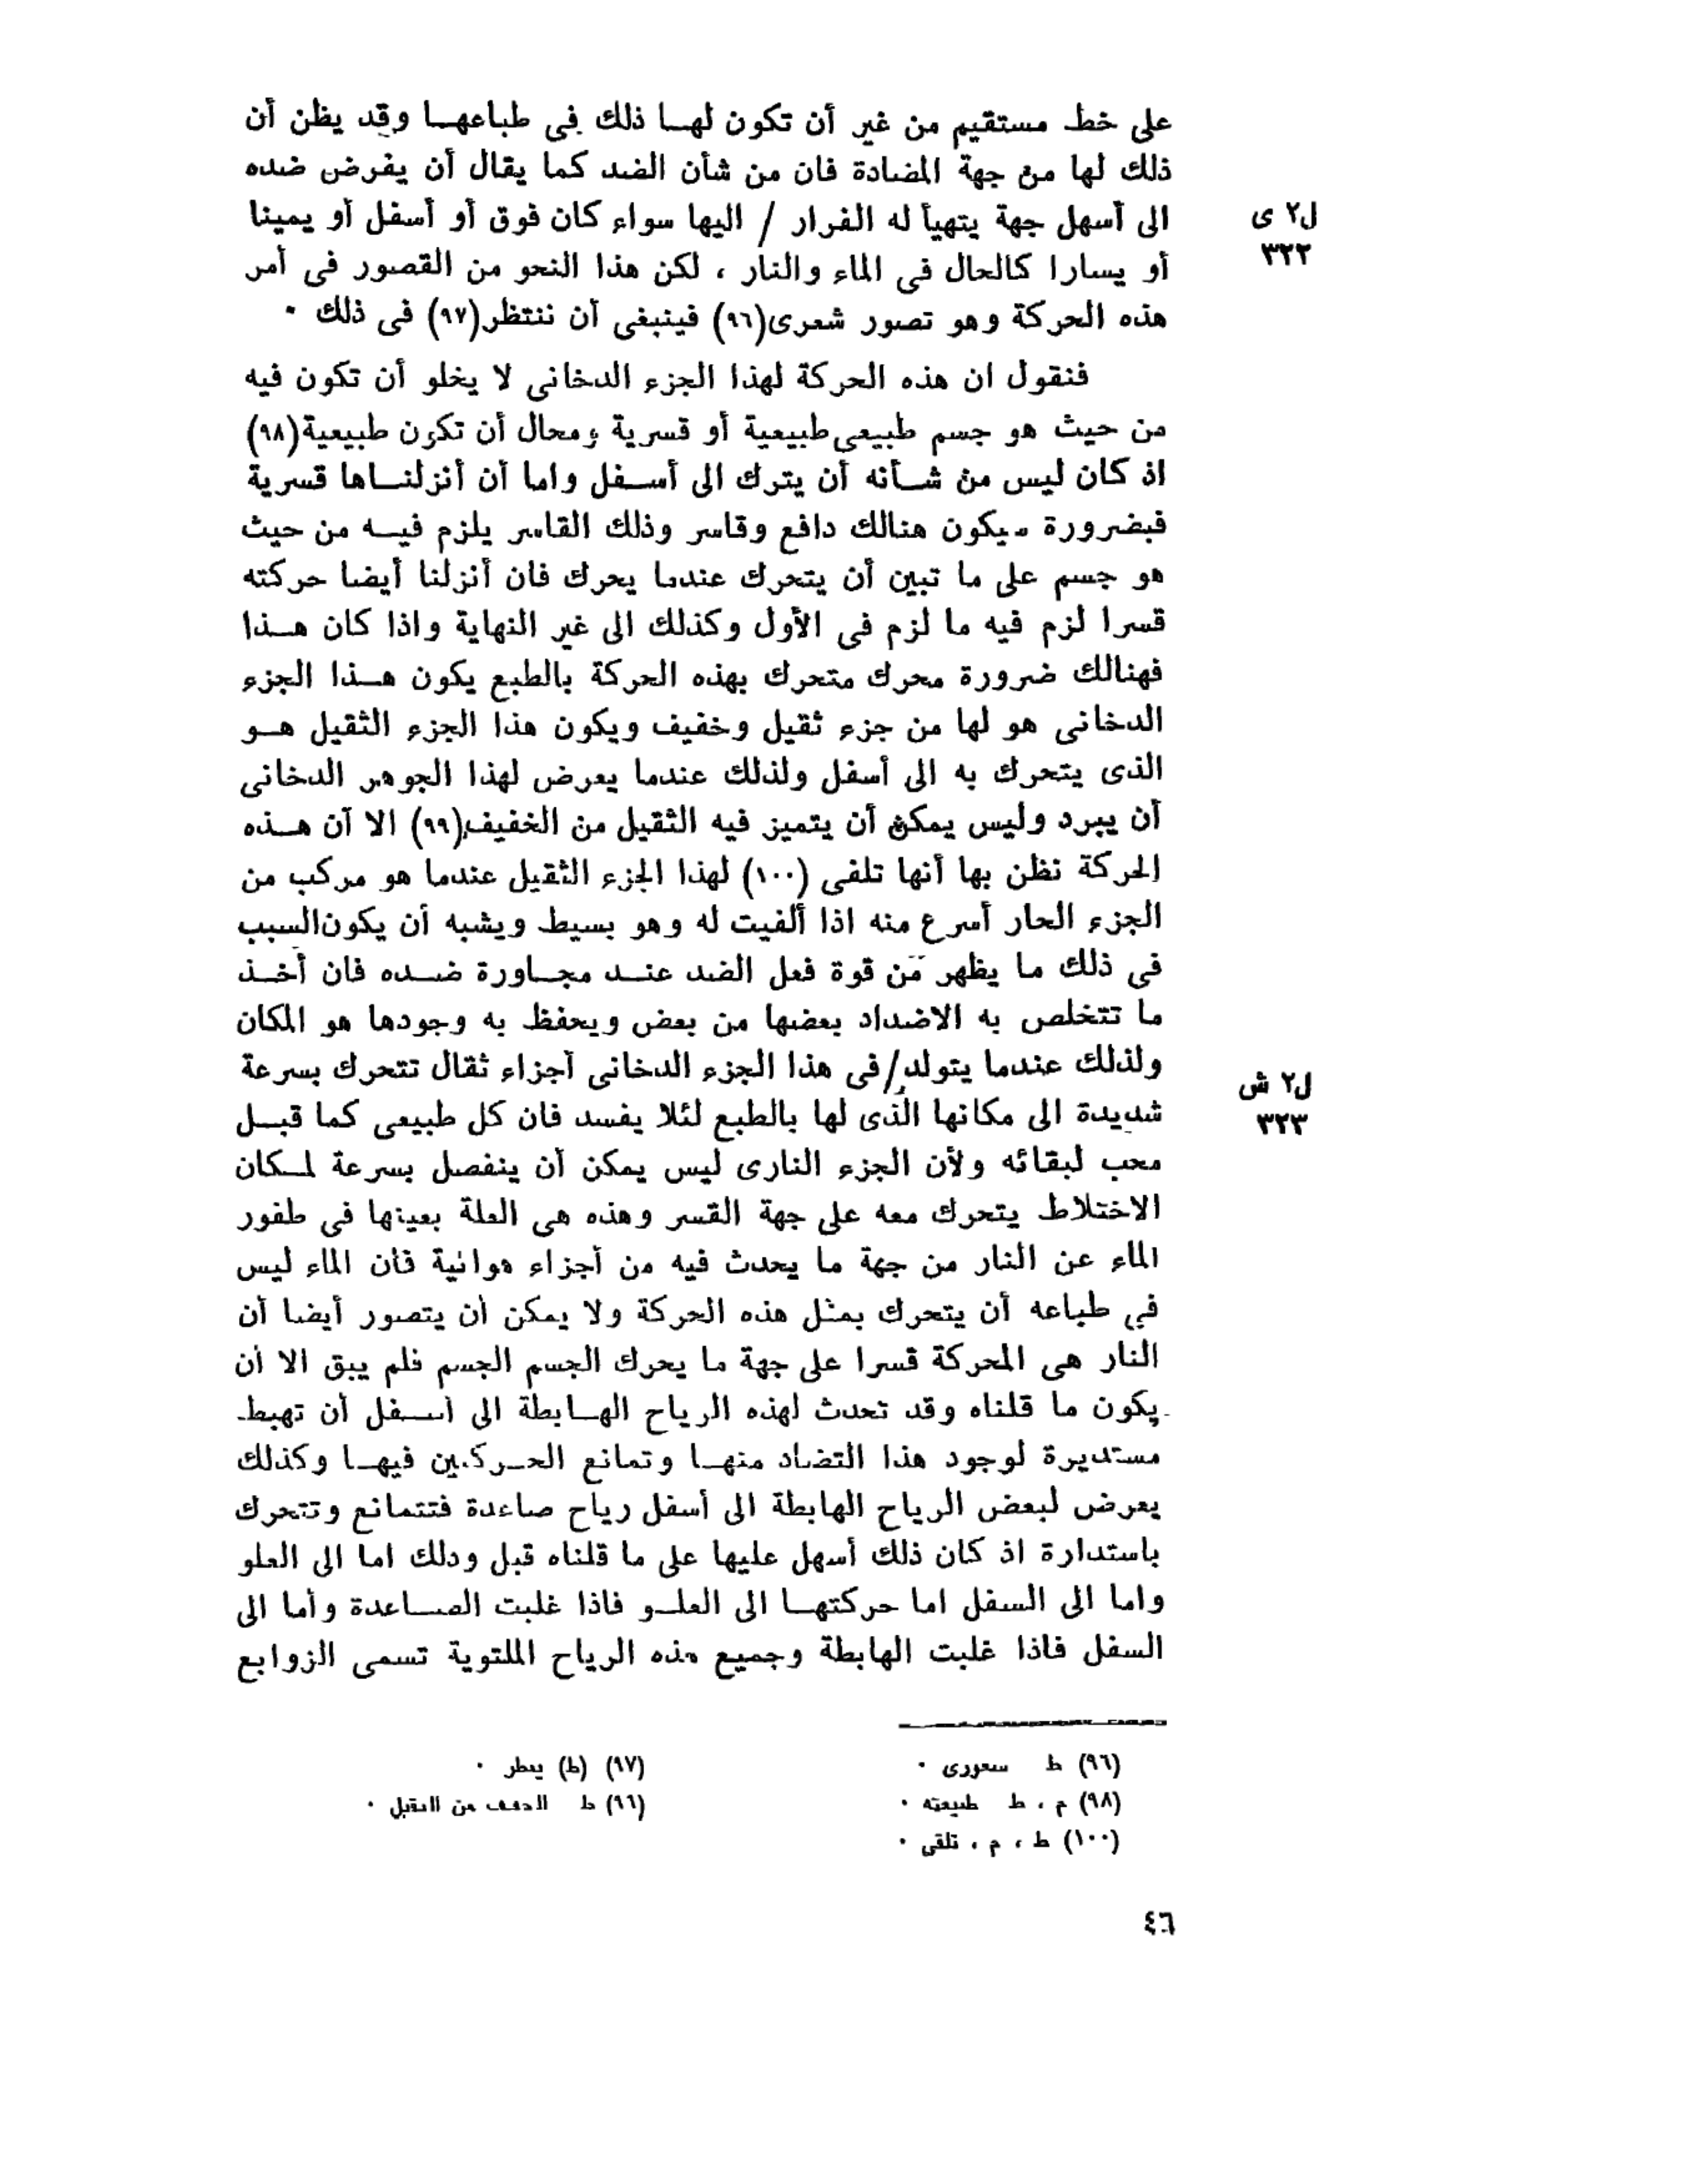 على خط مستقيم من غير أن تكون لهـا ذلك فى طباعهـا وقد يظن أن
ذلك لها من جهة المضادة فان من شأن الضد كما يقال أن يفرض ضده
الى أسهل جهة يتهيأ له الفرار / اليها سواء كان فوق أو أسفل أو يمينا
ل٢ ى
٣٢٢
أو يسارا كالحال فى الماء والنار ، لكن هذا النحو من القصور فى أمر
هذه الحركة وهو تصور شعرى(٩٦) فينبغى أن ننتظر(٩٧) فى ذلك ٠
فنقول ان هذه الحركة لهذا الجزء الدخانى لا يخلو أن تكون فيه
من حيث هو جسم طبيعى طبيعية أو قسرية ومحال أن تكون طبيعية(٩٨)
اذ كان ليس من شـأنه أن يترك الى أسـفل واما أن أنزلنـاها قسرية
فبضرورة سيكون هنالك دافع وقاسر وذلك القاسر يلزم فيـه من حيث
هو جسم على ما تبين أن يتحرك عندما يحرك فان أنزلنا أيضا حركته
قسرا لزم فيه ما لزم فى الأول وكذلك الى غير النهاية واذا كان هـذا
فهنالك ضرورة محرك متحرك بهذه الحركة بالطبع يكون هـذا الجزء
الدخانى هو لها من جزء ثقيل وخفيف ويكون هذا الجزء الثقيل هـو
الذى يتحرك به الى أسفل ولذلك عندما يعرض لهذا الجوهر الدخانى
أن يبرد وليس يمكن أن يتميز فيه الثقيل من الخفيف(٩٩) الا أن هـذه
الحركة نظن بها أنها تلفى (١٠٠) لهذا الجزء الثقيل عندما هو مركب من
الجزء الحار أسرع منه اذا ألفيت له وهو بسيط ويشبه أن يكون السبب
فى ذلك ما يظهر من قوة فعل الضد عنـد مجـاورة ضـده فان أخـذ
ما تتخلص به الاضداد بعضها من بعض ويحفظ به وجودها هو المكان
ولذلك عندما يتولد/ فى هذا الجزء الدخانى أجزاء ثقال تتحرك بسرعة
ل٢ ش
٣٢٣
شديدة الى مكانها الذى لها بالطبع لئلا يفسد فان كل طبيعى كما قبـل
محب لبقائه ولأن الجزء النارى ليس يمكن أن ينفصل بسرعة لمـكان
الاختلاط يتحرك معه على جهة القسر وهذه هى العلة بعينها فى طفور
الماء عن النار من جهة ما يحدث فيه من أجزاء هوائية فان الماء ليس
فى طباعه أن يتحرك بمثل هذه الحركة ولا يمكن أن يتصور أيضا أن
النار هى المحركة قسرا على جهة ما يحرك الجسم الجسم فلم يبق الا أن
يكون ما قلناه وقد تحدث لهذه الرياح الهـابطة الى أسـفل أن تهبط
مستديرة لوجود هذا التضاد منهـا وتمانع الحـركتين فيهـا وكذلك
يعرض لبعض الرياح الهابطة الى أسفل رياح صاعدة فتتمانع وتتحرك
باستدارة اذ كان ذلك أسهل عليها على ما قلناه قبل ودلك اما الى العلو
واما الى السفل اما حركتهـا الى العلـو فاذا غلبت الصـاعدة وأما الى
السفل فاذا غلبت الهابطة وجميع هذه الرياح الملتوية تسمى الزوابع
(٩٦) ط سعورى ٠
(٩٧) (ط) ينطر ٠
(٩٨) م ، ط طبيعته ٠
(٩٦) ط من
(١٠٠) ط ، م ، تلقى ٠
٤٦